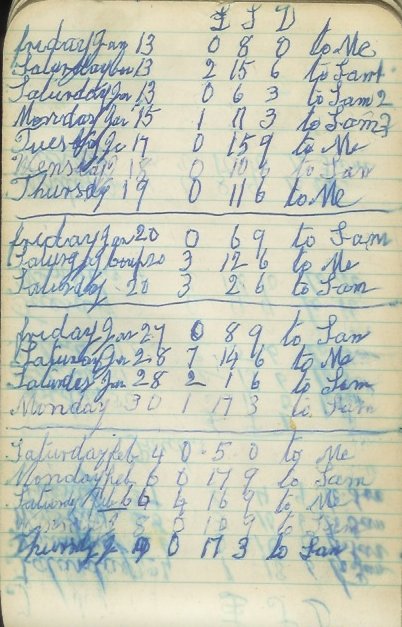 £ S D
friday Jany 13 0 8 0 to Me
Saturday 13 2 15 6 to Sam
Saturday Jan 13 0 6 3 to Sam 2
Monday Jan 15 1 17 3 to Sam 3
Tuesday Ja 17 0 15 9 to Me
18 0 10 6 to Sam
Thursday 19 0 11 6 to Me
friday Jan 20 0 6 9 to Sam
20 3 12 6 to Me
Saturday 20 3 2 6 to Sam
friday Jan 27 0 8 9 to Sam
Saturday Jan 28 7 14 6 to Me
Jan 28 2 1 6 to Sam
Monday 30 1 17 3 to Sam
Saturday feb 4 0 5 0 to Me
Monday feb 6 0 17 9 to Sam
4 16 9 to Me
8 0 10 9 to Sam
Thursday 0 17 3 to Sam